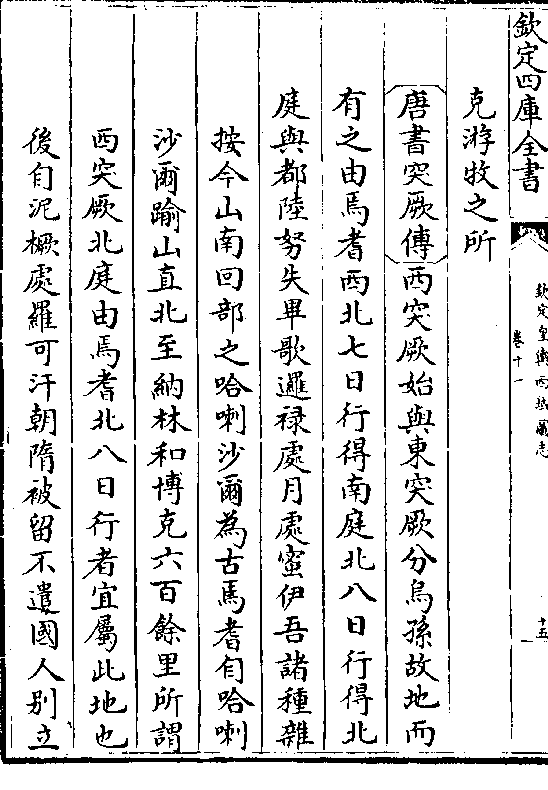 欽定四庫全書
欽定皇輿西域圖志
卷十一
十五
克游牧之所
唐書突厥傳西突厥始與東突厥分烏孫故地而
有之由焉耆西北七日行得南庭北八日行得北
庭與都陸努失畢歌邏祿處月處蜜伊吾諸種雜
按今山南回部之哈喇沙爾為古焉耆自哈喇
沙爾踰山直北至納林和博克六百餘里所謂
西突厥北庭由焉耆北八日行者宜屬此地也
後自泥橛處羅可汗朝隋被留不遣國人别立